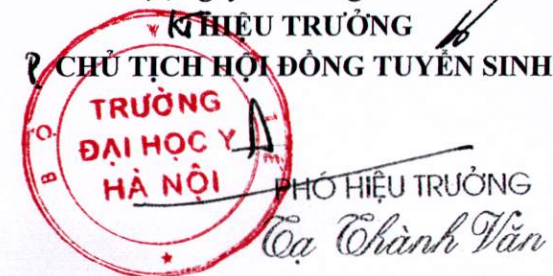 KT HIỆU TRƯỞNG
P CHỦ TỊCH HỘI ĐỒNG TUYỂN SINH
TRƯỜNG
ĐẠI HỌC Y
HÀ NỘI
BỘ Y TẾ
PHÓ HIỆU TRƯỞNG
Tạ Thành Văn